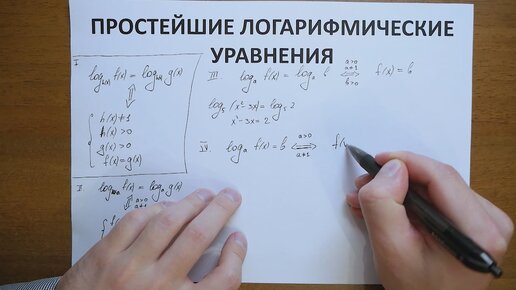 ПРОСТЕЙШИЕ ЛОГАРИФМИЧЕСКИЕ
УРАВНЕНИЯ
I
log_{h(x)} f(x) = log_{h(x)} g(x)
⇕
{ h(x) ≠ 1
h(x) > 0
g(x) > 0
f(x) = g(x)
II
f(x) = log_a g(x)
⇕ a>0 a≠1
III log_a f(x) = log_a b ⇔ a>0 a≠1 b>0 f(x) = b
log_5 (x²-3x) = log_5 2
x²-3x = 2
IV. log_a f(x) = b ⇔ a>0 a≠1 f(x